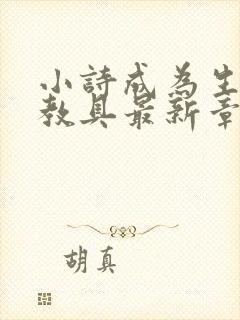 小詩成為生
教具最新章
胡真